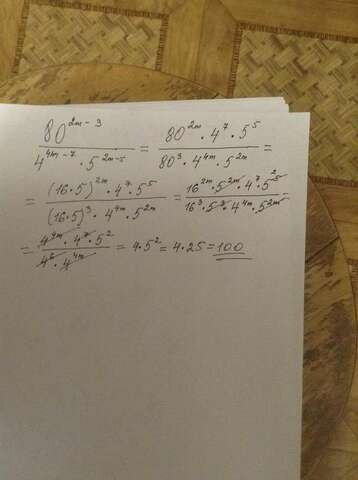 80^{2m-3} / (4^{4m-7} · 5^{2m-5}) = (80^{2m} · 4^7 · 5^5) / (80^3 · 4^{4m} · 5^{2m}) =
= ((16·5)^{2m} · 4^7 · 5^5) / ((16·5)^3 · 4^{4m} · 5^{2m}) = (16^{2m} · 5^{2m} · 4^7 · 5^5^2) / (16^3 · 5^3 · 4^{4m} · 5^{2m}) =
= (4^{4m} · 4^7 · 5^2) / (4^6 · 4^{4m}) = 4·5^2 = 4·25 = 100